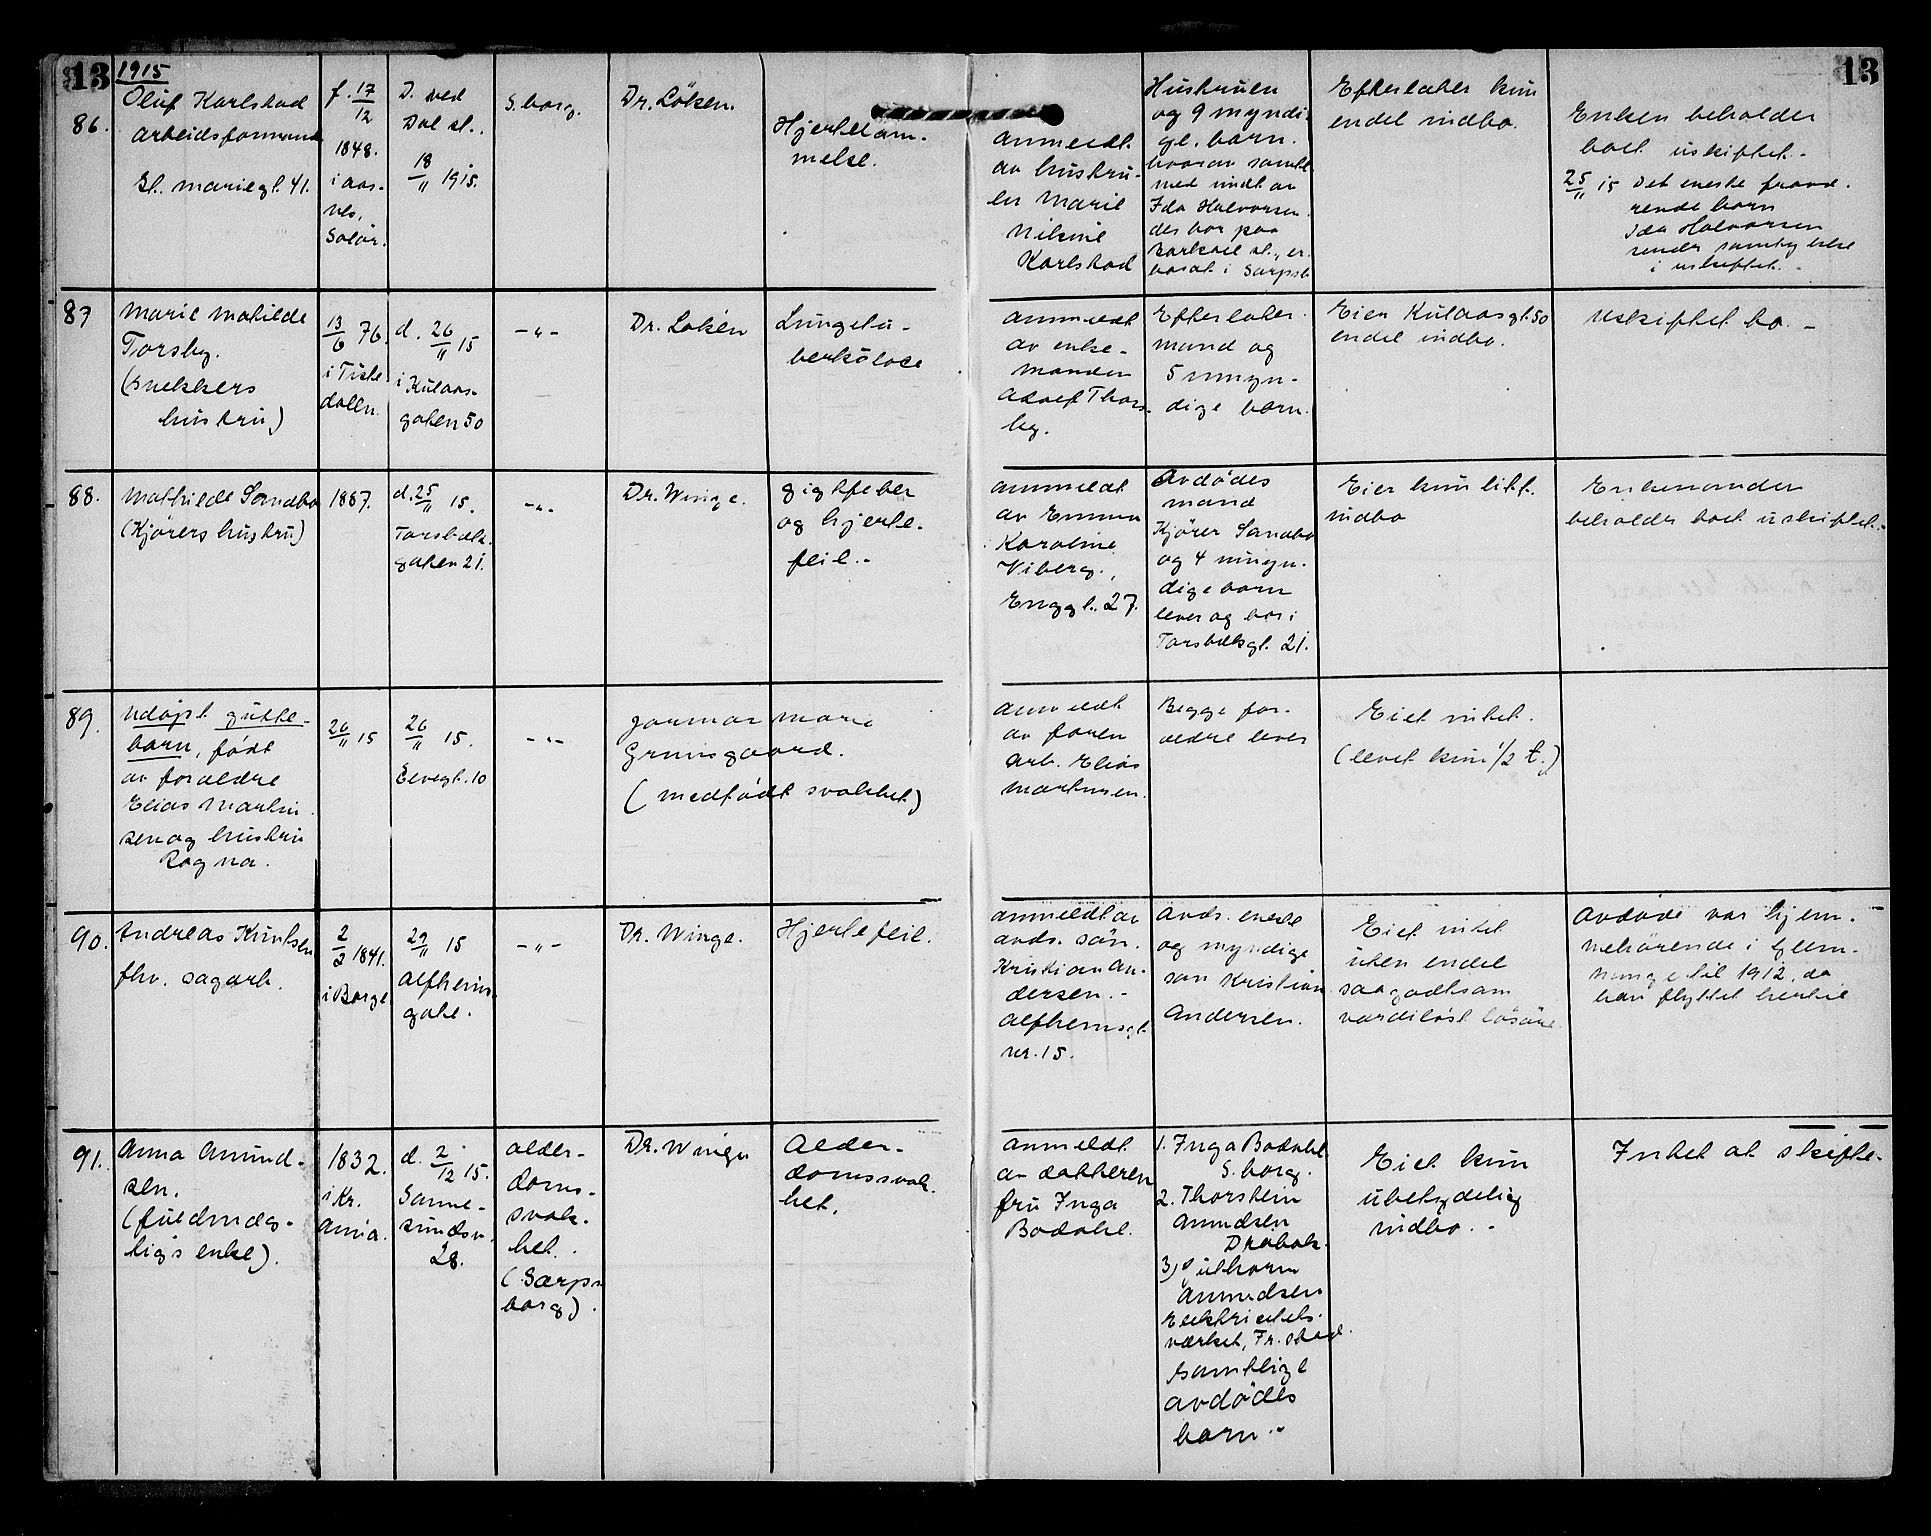 13
1915
13
86.
Oluf Karlstad
arbeidsformand
St. mariegt. 41.
f. 17/12
1848.
i aas-
nes,
Solör.
D. ved
Dal st.
18/11 1915.
S.borg.
Dr. Löken.
Hjertelam-
melse.
anmeldt
av hustru-
en Marie
Nikoline
Karlstad
Hustruen
og 9 myndi-
ge. barn.
hvorav samtl.
med undt. av
Ida Halvorsen
der bor paa
st., er
bosat i Sarpsb.
Efterlater kun
endel indbo.
Enken beholder
boet uskiftet.-
25/11 15 Det eneste fravæ-
rende barn
Ida Halvorsen
sender samtykke
i uskiftet.-
87
Marie Matilde
Torsby.
(snekkers
hustru)
13/6 76.
i Tiste
dalen.
d. 26/11 15
i Kulaas-
gaten 50
-"-
Dr. Lokén
Lungetu-
berkölose
anmeldt
av enke-
manden
Adolf Thors-
by.
Efterlater
mand og
5 umyn-
dige barn.
Eier Kulaasgt. 50
endel indbo.
Uskiftet bo.-
88.
Mathilde Sandbo
(Kjörers hustru)
1887.
d. 25/11 15.
Torsbæk-
gaten 21.
-"-
Dr. Winge.
gigtfeber
og hjerte-
feil.-
anmeldt
av Emma
Karoline
Viberg,
Enggt. 27.
Avdödes
mand
Kjörer Sandbo
og 4 umyn-
dige barn
lever og bor i
Torsbækgt. 21.
Eier kun litt.
indbo
Enkemanden
beholder boet uskiftet.-
89.
Udöpt gutte-
barn, födt
av forældre
Elias Martin
sen og hustru
Ragna.
26/11 15
26/11 15.
Elvegt. 10
-"-
Jormor Marie
Grimsgaard.
(medfödt svakhet)
anmeldt
av faren
arb. Elias
Martinsen.
Begge for-
ældre lever
Eiet intet.
(levet kun 1/2 t.)
90.
Andreas Knutsen
fhv. sagarb.
2/2 1841.
i Borge
29/11 15
Alfheims-
gate.
-"-
Dr. Winge.
Hjertefeil.
anmeldt av
avds. sön.
Kristian An-
dersen.-
Alfheimsgt.
nr. 15.
Avds. eneste
og myndige
sön Kristian
Andersen.
Eiet intet
uten endel
saagodtsom
værdilöst lösöre
Avdöde var hjem-
mehörende i Glem-
minge til 1912, da
han flyttet hertil
91.
Anna Amund-
sen.
(fuldmæg-
tig's enke).
1832.
i Kr.
ania.
d. 2/12 15.
Sanne-
sundsv.
28.
alder-
doms-
svak-
het.
(Sarps-
borg).
Dr. Winge
Alder-
domssvak-
het.
anmeldt
av datteren
fru Inga
Bodahl.
1. Inga Bodahl
S.borg.
2. Thorstein
Amundsen
Dröbak.
3) Guthorm
Amundsen
Elektricitets-
værket, Fr.stad.
samtlige
avdödes
barn.-
Eiet kun
ubetydelig
indbo.-
Intet at skifte.